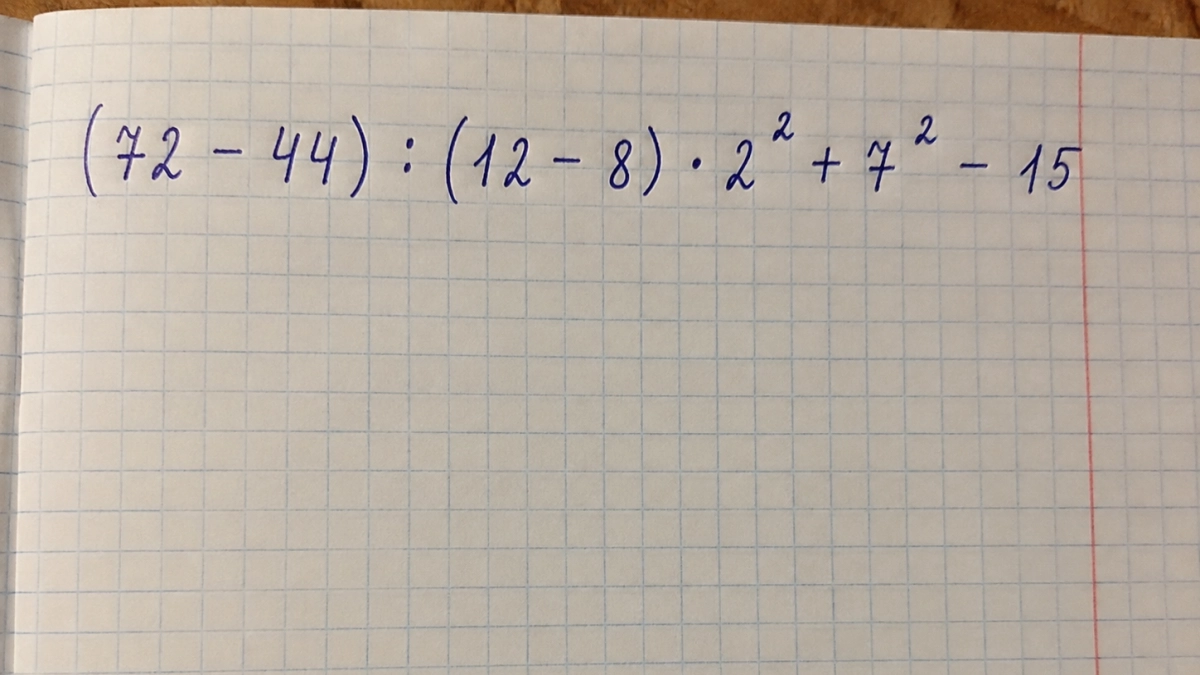 (72 - 44) : (12 - 8) · 2² + 7² - 15